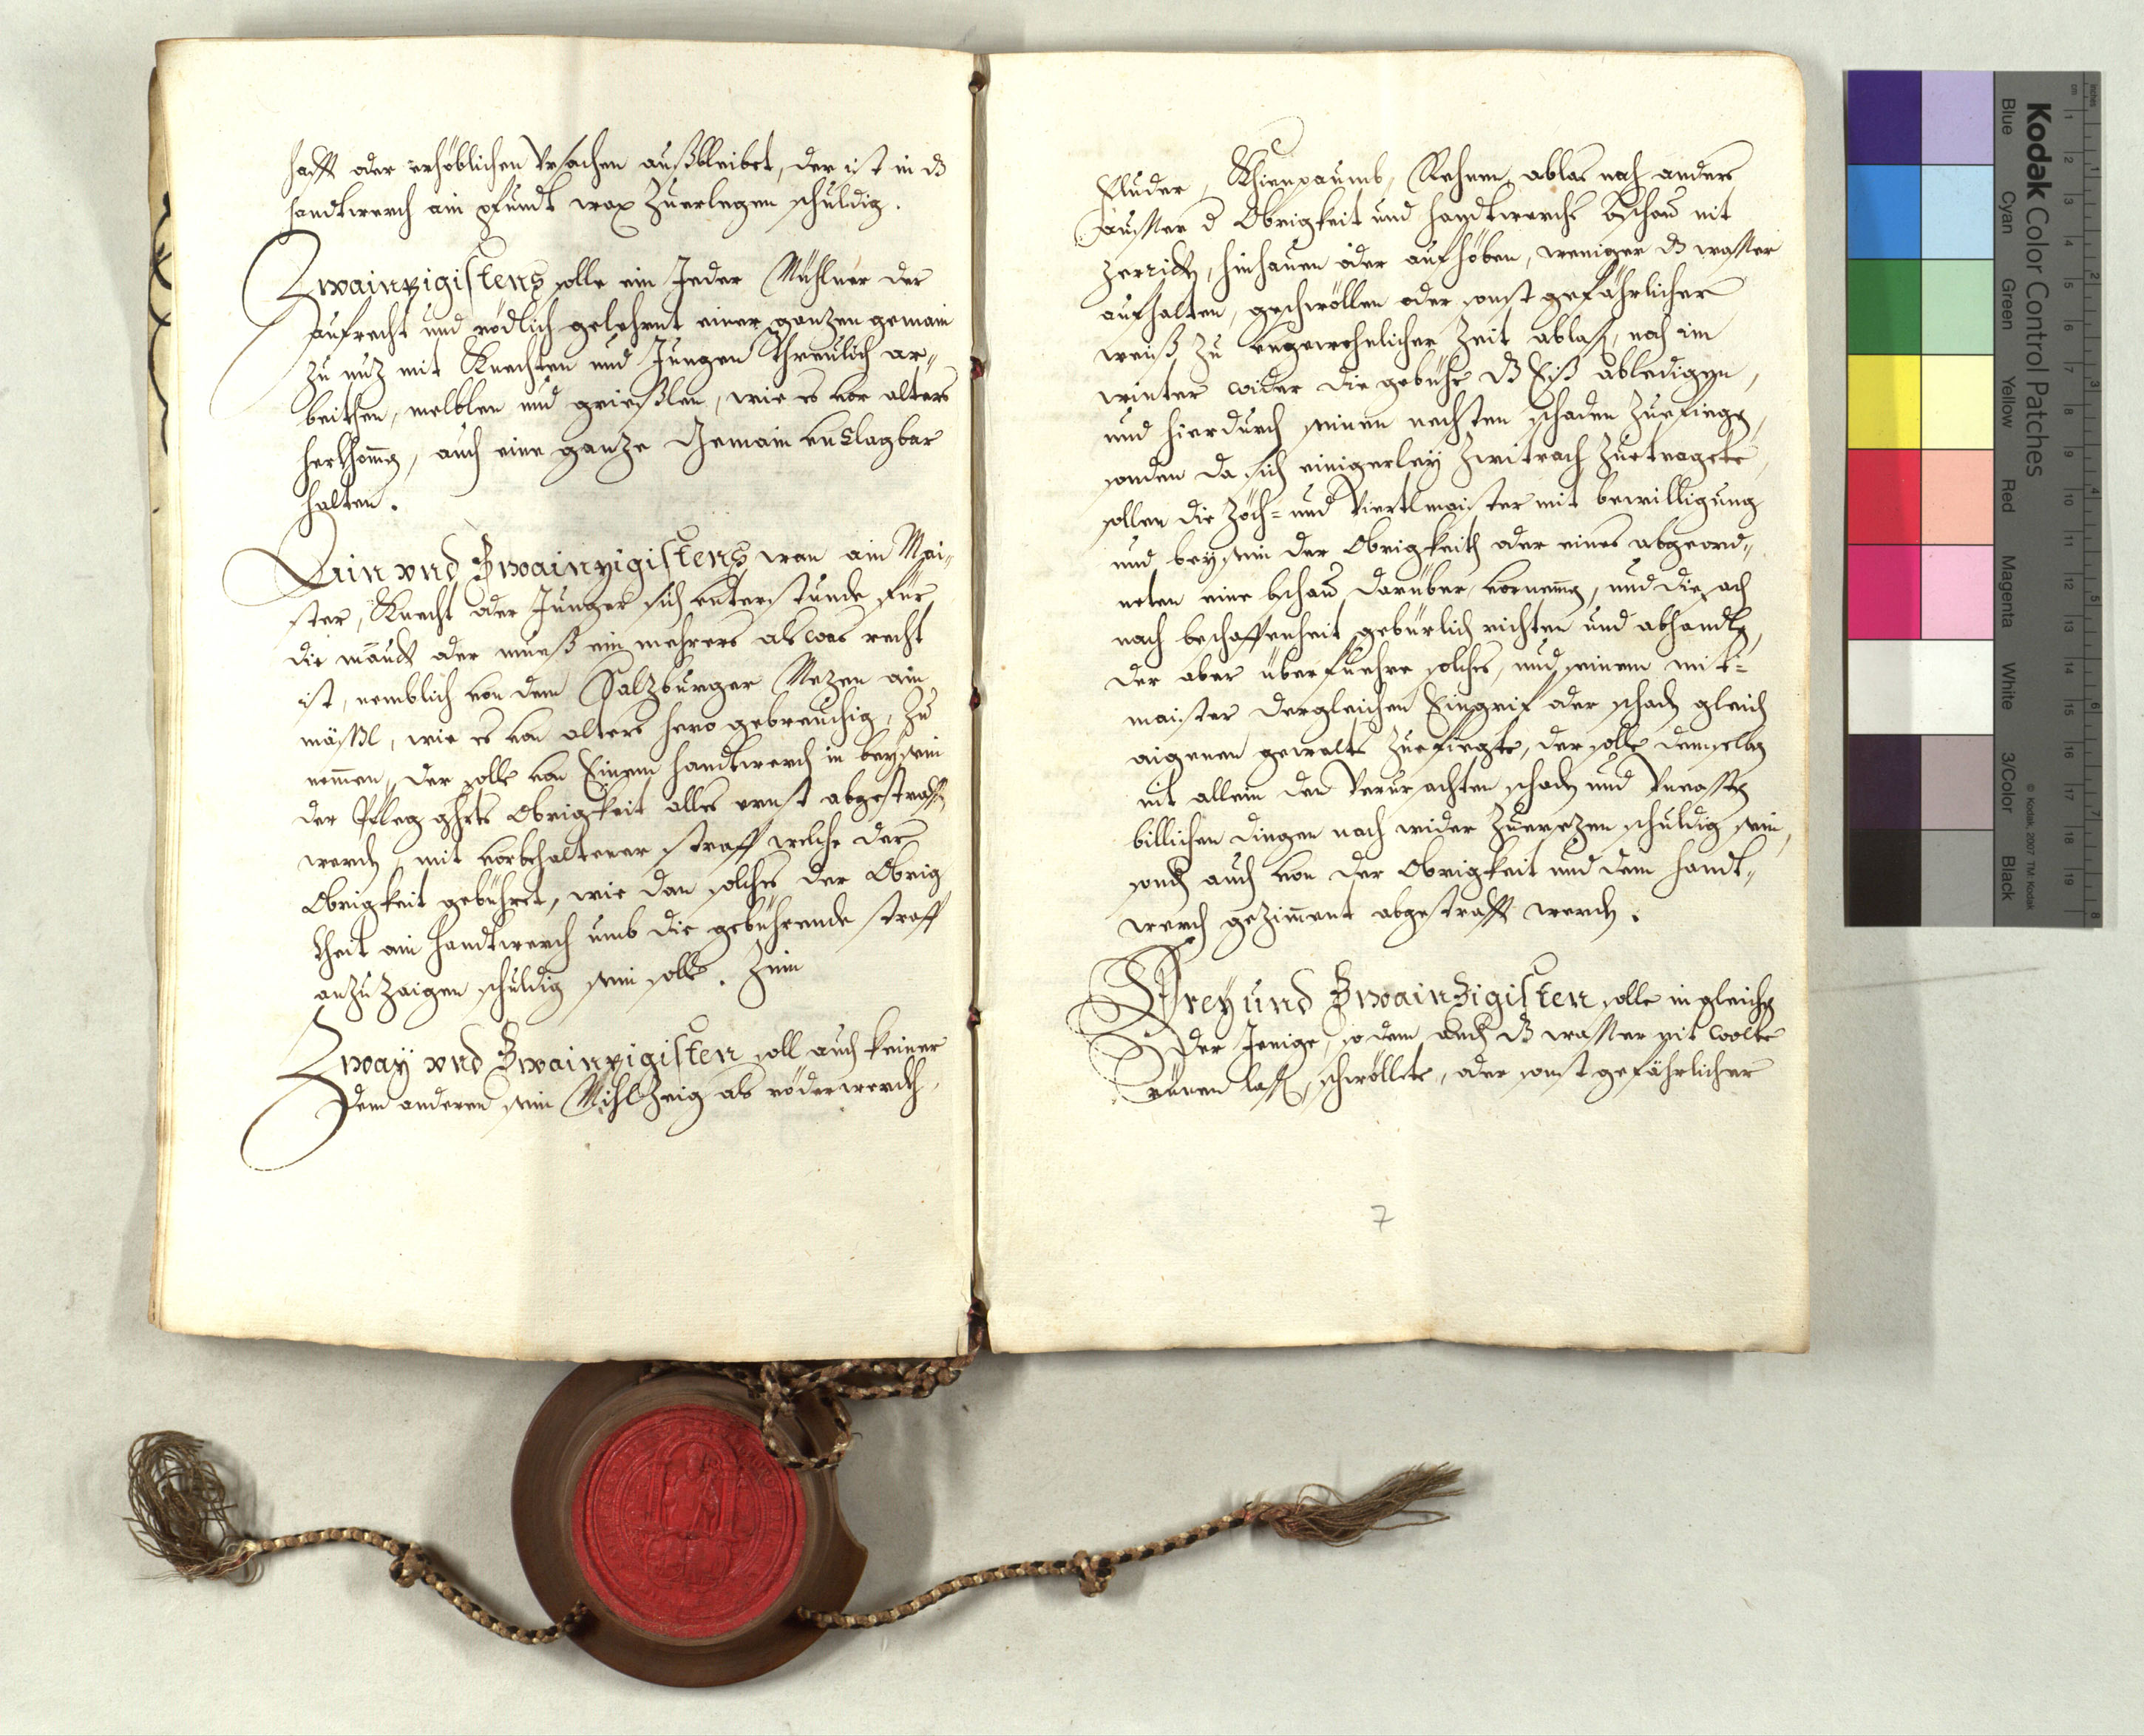 hafft oder erhöblichen Vrsachen außbleibet, der ist in dz
handtwerch ain pfundt wax Zuerlegen schuldig.
Zwainzigistens solle ein Jeder Mühlner der
aufrecht und rödlich gelehrnt einer ganzen gemain
zu nuz mit Knechten und Jungen threulich ar-
beithen, melblen und grießlen, wie es vor alters
herkhomen, auch eine ganze Gemain Unclagbar
halten.
Ain vnd Zwainzigistens wan ain Mai-
ster, Knecht oder Junger sich Unterstunde für
die mäudt oder mueß ein mehrers als was recht
ist, nemblich von dem Salzburger Mezen ain
mässl, wie es von alters hero gebreuchig, Zu
nemmen, der solle von Einem handtwerch in beysein
der Pfleg ghrts Obrigkeit alles ernst abgestrafft
werden, mit vorbehaltener straff welche der
Obrigkeit gebühret, wie dan solches der Obrig
kheit ain handtwerch umb die gebührende straff
anzuzaigen schuldig sein solle.
Zway vnd Zwainzigisten soll auch keiner
dem anderen sein Mihl Zeig als röderwerch,
Fluder, Rehnen ablas noch anders
ausser d Obrigkeit und handtwerchs bschau nit
hinhauen oder aufhöben, weniger dz wasser
aufhalten, geschwöllen oder sonst gefährlicher
weiß zu Ungewohnlicher Zeit ablasen, noch im
winter wider die gebühr dz Eiß abledigen,
und hierdurch seinen nechsten schaden Zuefiegen,
sonden da sich einigerley Zwitrach Zuetragete,
sollen die Zöch- und Viertlmaister mit bewilligung
und beysein der Obrigkeith oder eines abgeord-
neten eine bschau darüber vornemen, und die sach
nach beschaffenheit gebürlich richten und abhandlen,
der aber überfuehre solches, und seinem mit-
maister dergleichen Eingrif oder schaden gleich
aigenen gewalts Zuefiegte, der solle demselben
nit allein den Verursachten schaden und Uncossten
billichen dingen nach wider Zuersezen schuldig sein,
sonder auch von der Obrigkeit und dem handt-
werch gezimment abgestrafft werden.
Drey und Zwainzigisten solle in gleichen
der Jenige, so dem andern dz wasser nit wolte
rinen lassen, schwöllete, oder sonst gefährlicher
7
Kodak Color Control Patches
© Kodak, 2007 TM: Kodak
Blue Cyan Green Yellow Red Magenta White 3/Color Black
cm 1 2 3 4 5 6 7 8 9 10 11 12 13 14 15 16 17 18 19
inches 1 2 3 4 5 6 7 8